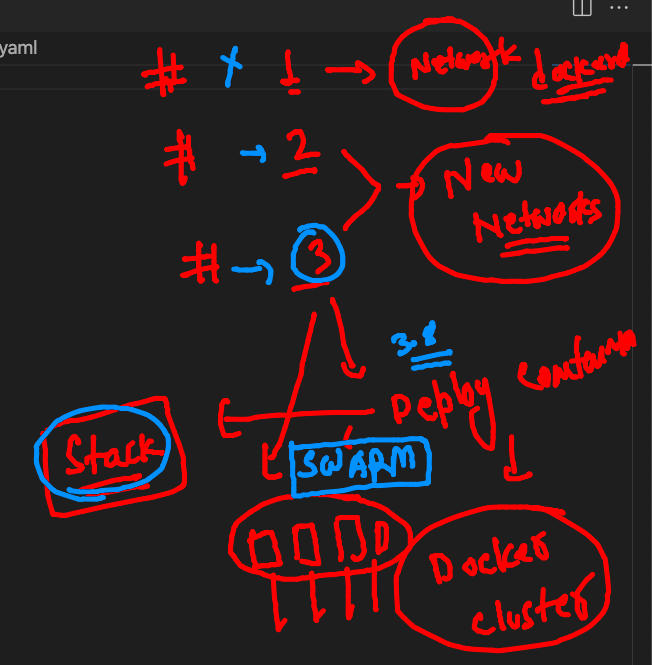 yaml
# x 1 → Network docker0
# → 2
New
Networks
# → 3
3.8
Deploy container
Stack
SWARM
Docker
cluster